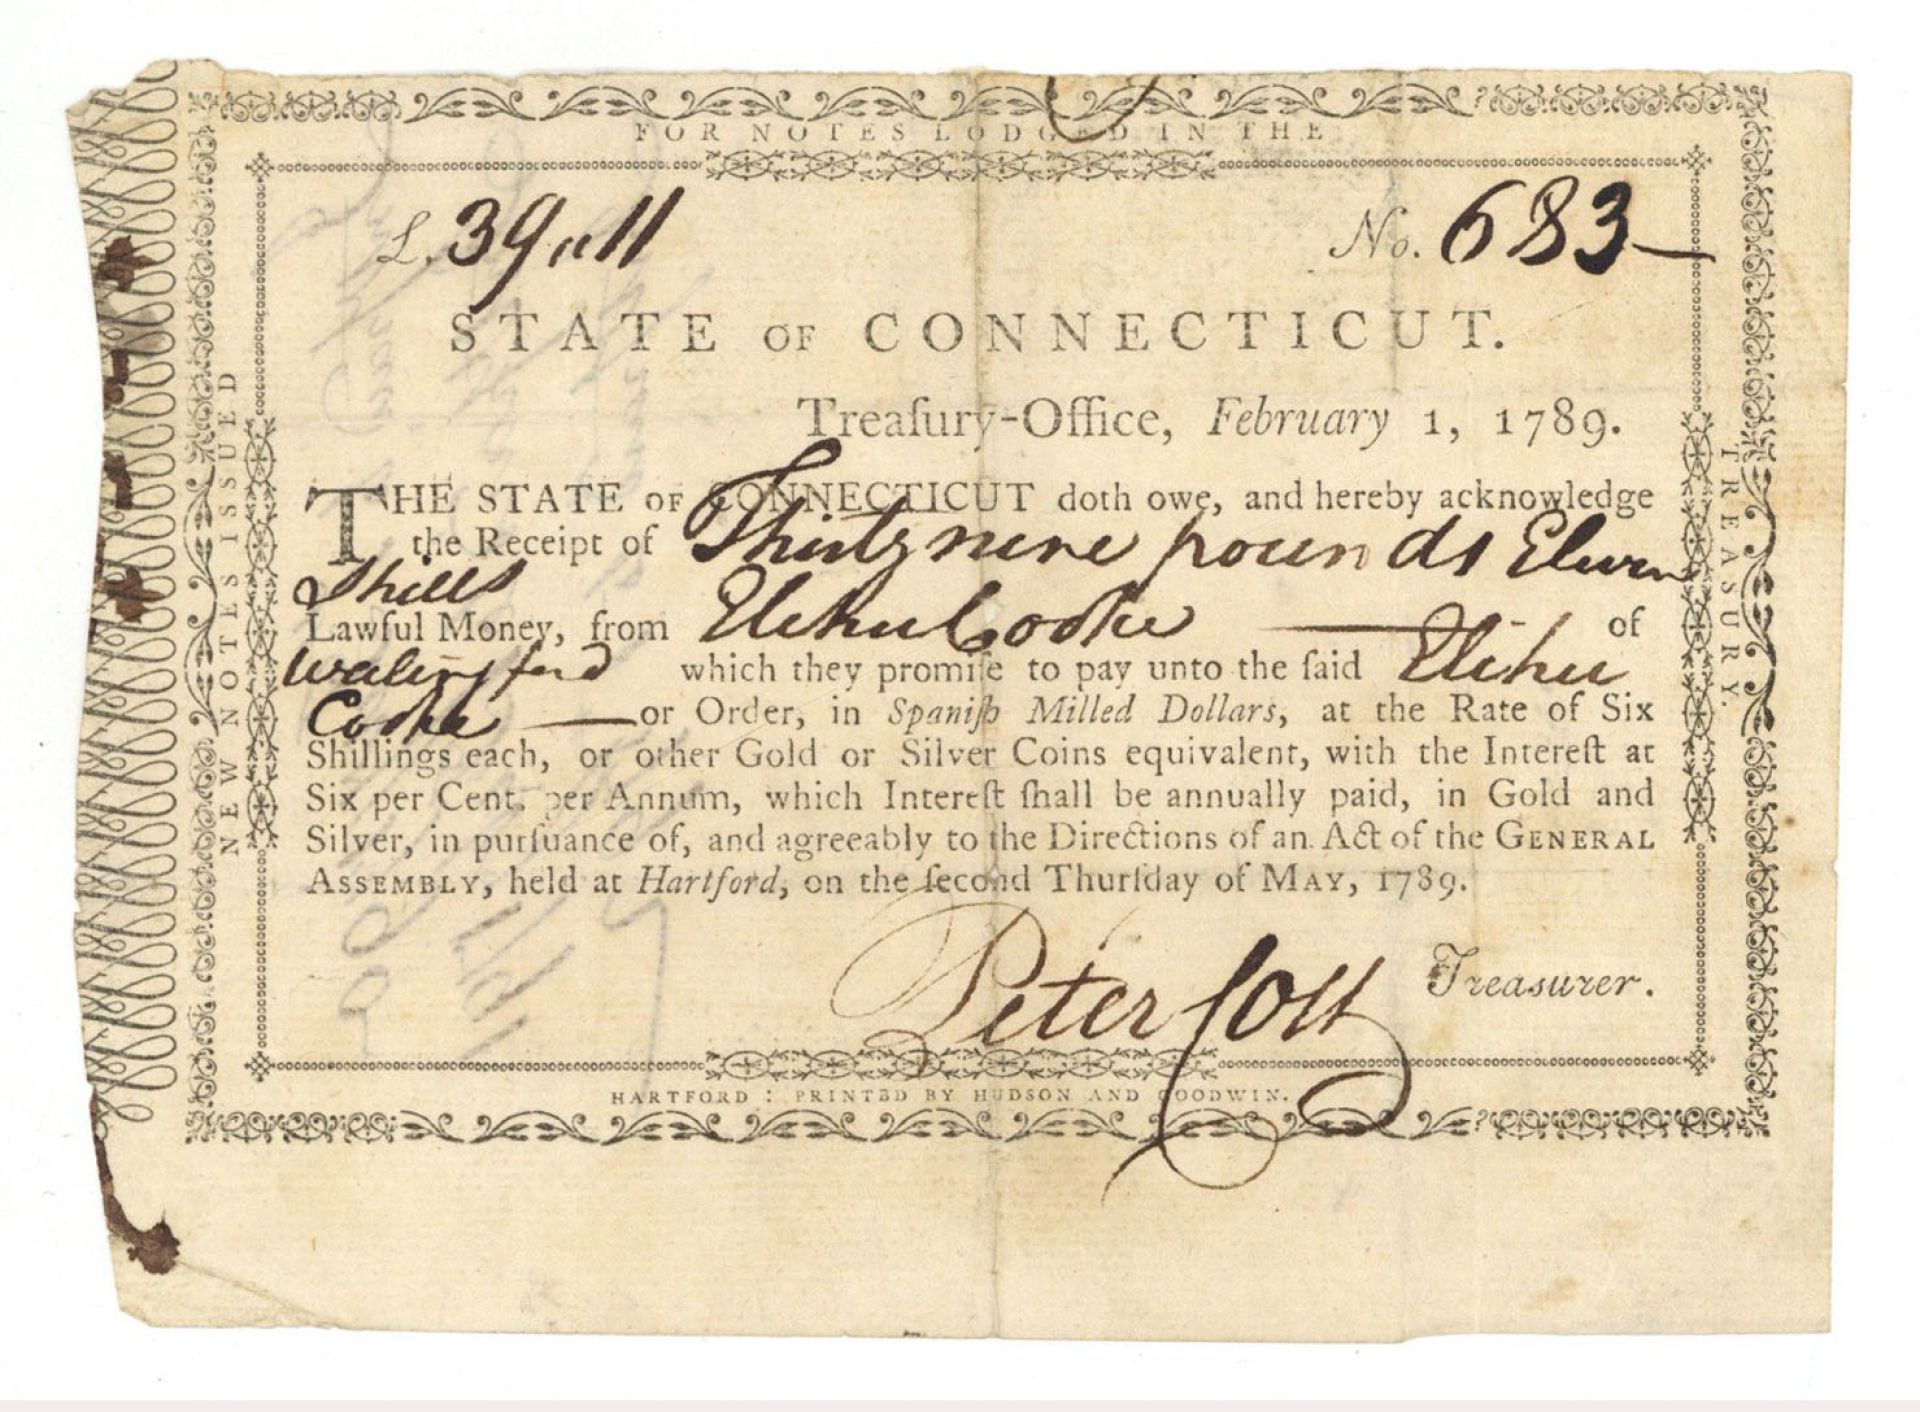 FOR NOTES LODGED IN THE
TREASURY.
NEW NOTES ISSUED
£. 39,,11
No. 683
STATE OF CONNECTICUT.
Treaſury-Office, February 1, 1789.
THE STATE OF CONNECTICUT doth owe, and hereby acknowledge
the Receipt of Thirty nine pounds Eleven
Shills
Lawful Money, from Elihu Cooke of
Walingford which they promiſe to pay unto the ſaid Elihu
Cooke or Order, in Spaniſh Milled Dollars, at the Rate of Six
Shillings each, or other Gold or Silver Coins equivalent, with the Intereſt at
Six per Cent. per Annum, which Intereſt ſhall be annually paid, in Gold and
Silver, in purſuance of, and agreeably to the Directions of an Act of the GENERAL
ASSEMBLY, held at Hartford, on the ſecond Thurſday of MAY, 1789.
Peter Colt Treasurer.
HARTFORD: PRINTED BY HUDSON AND GOODWIN.